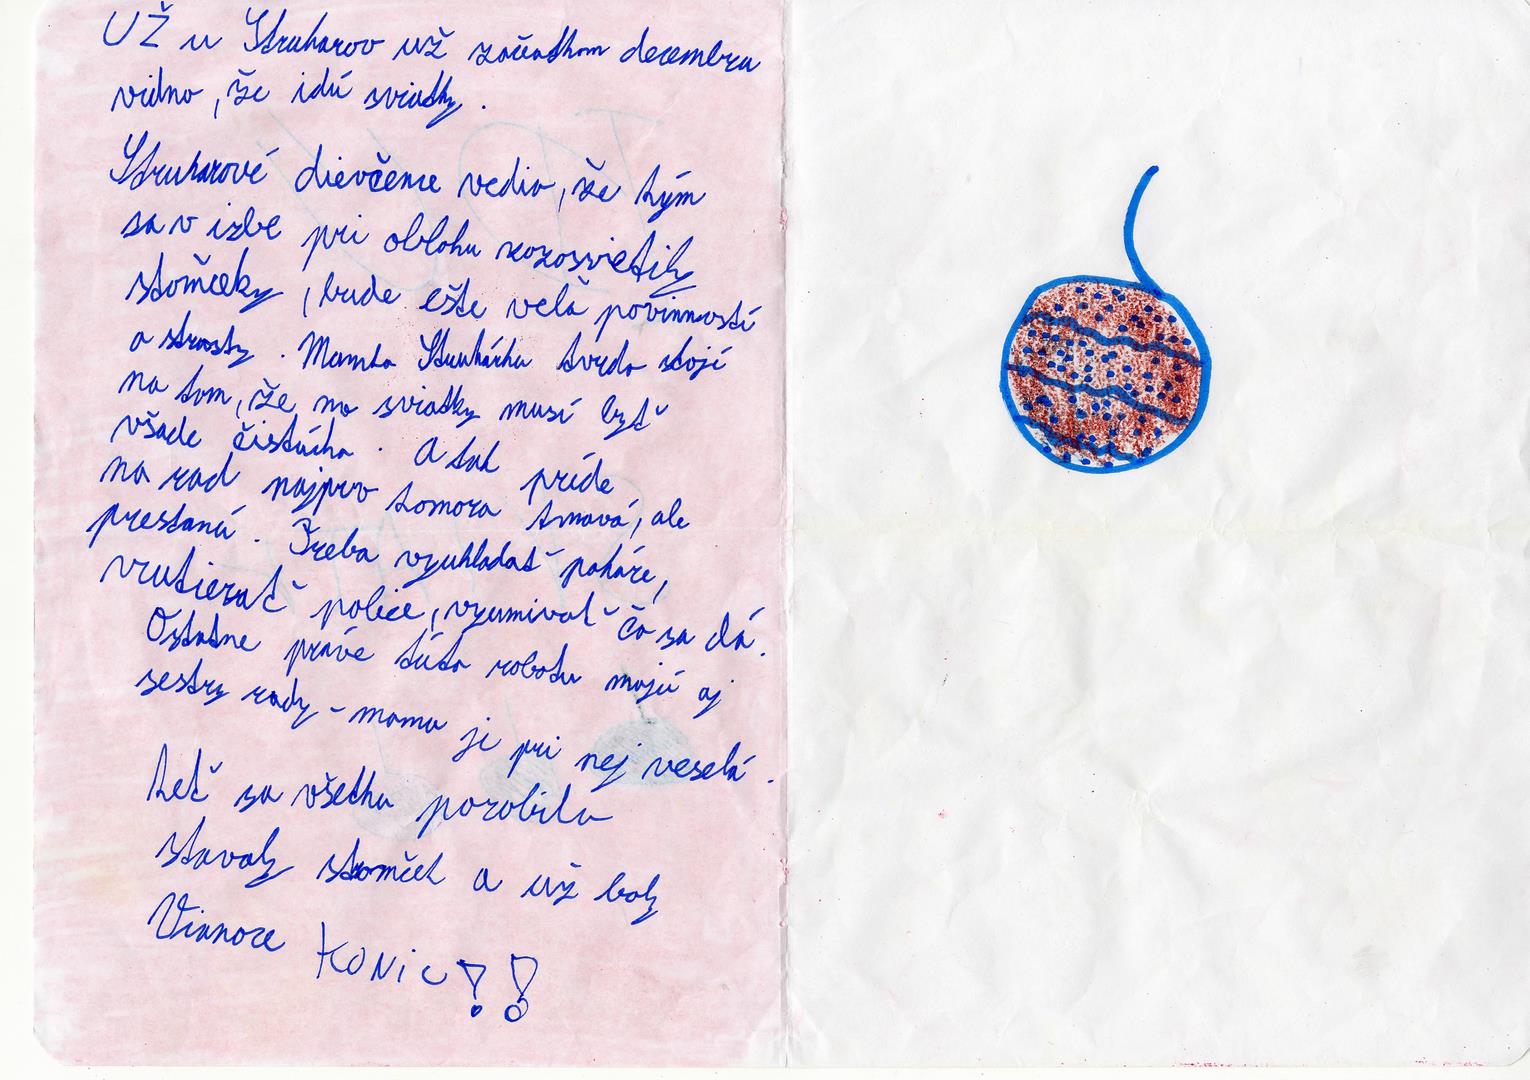 UŽ u Struharov už začiatkom decembra
vidno, že idú sviatky.
Struharové dievčence vedia, že kým
sa v izbe pri oblohu rozosvietily
stomčeky, bude ešte velà povinností
a strasty. Mamka Struhárka tvrdo stojí
na tom, že na sviatky musí byť
všade čistúcho. A tak príde
na rad najprv komora tmavá, ale
prestaná. Treba vyuhladať poháre,
vrutierať police, vyumivať čo sa dá.
Ostatne práve túto robotu majú aj
sestry rady - mama je pri nej veselá.
Keť sa všetko porobilo
stavaly stomček a už boly
Vianoce KONIC!!